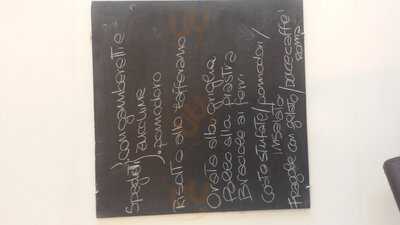 Spaghetti ) con gamberetti e
) zucchine
) pomodoro
Risotto allo zafferano
Orata alla griglia
Pollo alla piastra
Braciole ai ferri
Coste stufate/pomodori/
insalata
Fragole con gelato/ caffè